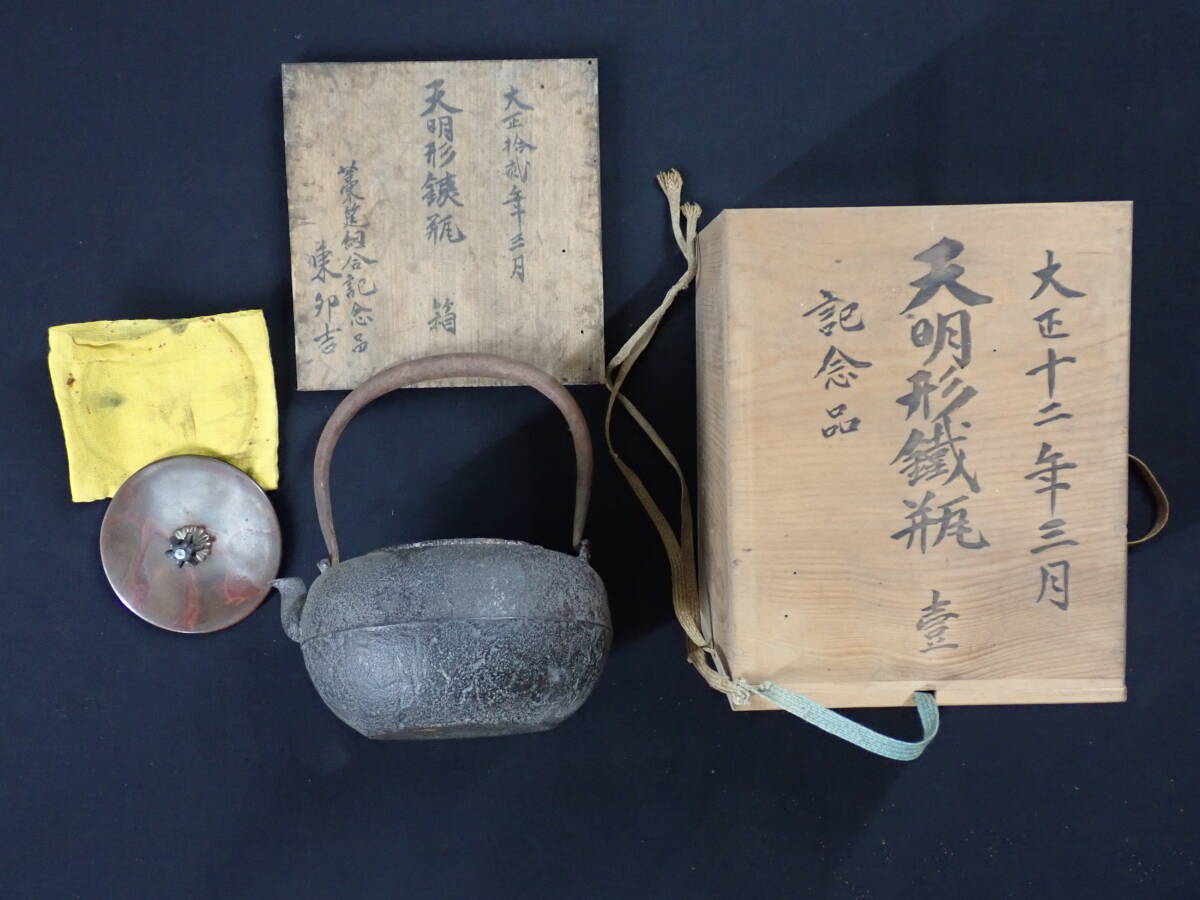 大正拾貳年三月
天明形鉄瓶 箱
藁莚組合記念品
東卯吉
大正十二年三月
天明形鐵瓶 壹
記念品